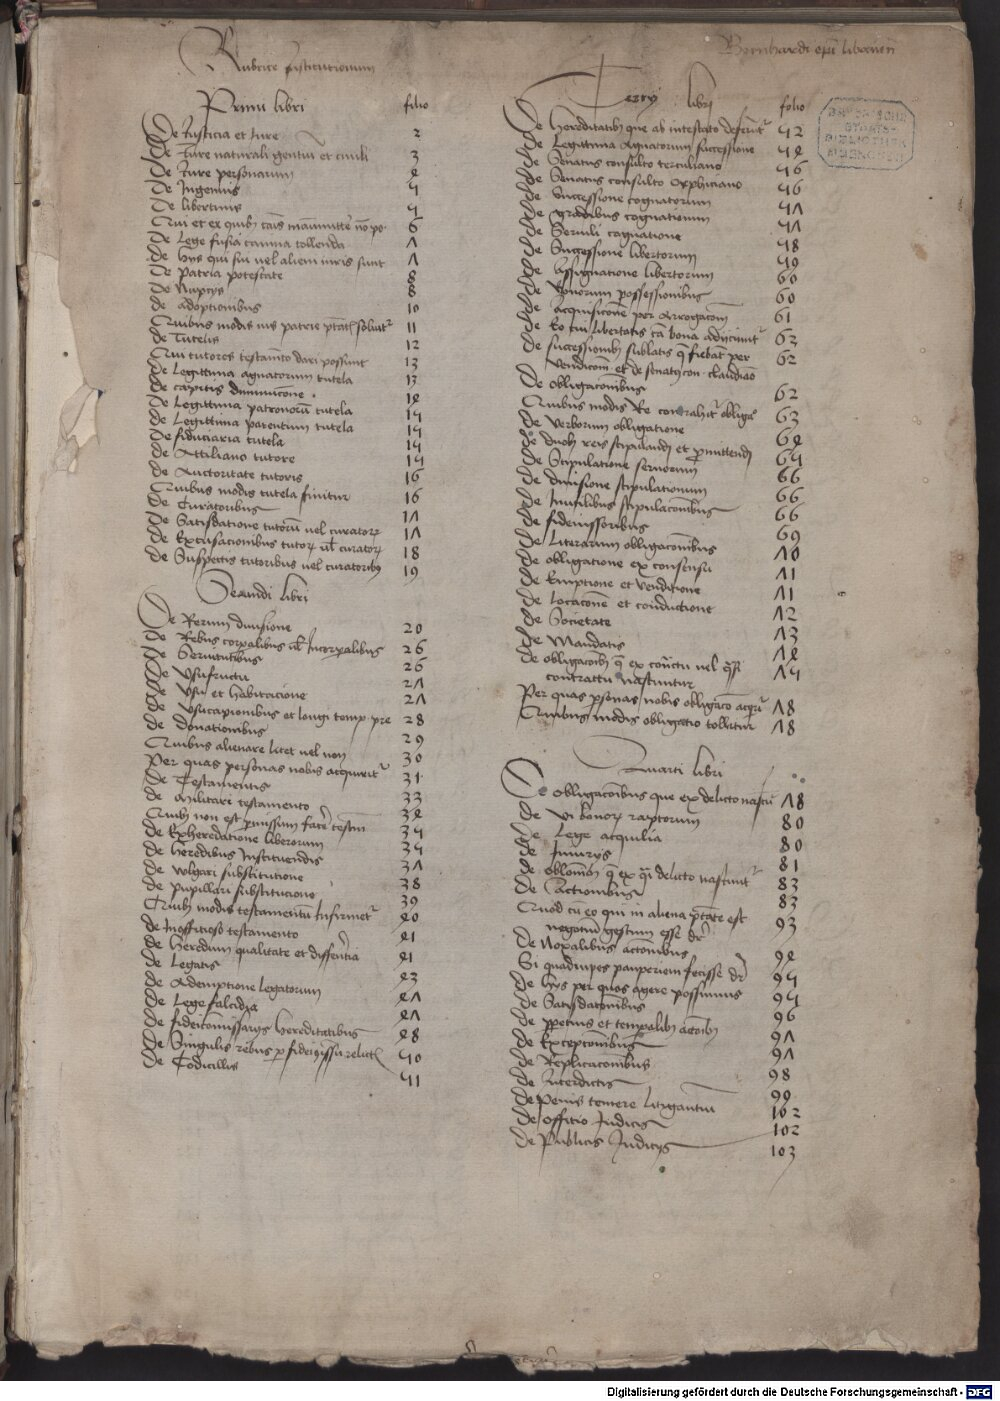 Rubrice Institutionum
Bernhardi epi libanen
Primi libri folio
De Iusticia et Iure 2
De Iure naturali gentiu et ciuili 3
De Iure personarum 4
De Ingenuis 5
De libertinis 5
Qui et ex quib cais manumitte no po 6
De Lege fusia canina tollenda 7
De hys qui sui uel alieni iuris sunt 7
De patria potestate 8
De Nupcys 8
de adoptionibus 10
Quibus modis ius patrie ptatis soluit 11
De Tutelis 12
Qui tutores testamto dari possunt 13
De Legittima agnatorum tutela 13
De capitis diminucone 14
De Legittima patronoru tutela 15
De Legittima parentum tutela 15
De fiduciaria tutela 15
De Attiliano tutore 15
De Auctoritate tutoris 16
Quibus modis tutela finitur 16
De Curatoribus 17
De Satisdatione tutoru uel curator 17
De Excusacionibus tutor ul curator 18
De Suspectis tutoribus uel curatoribs 19
Secundi libri
De Rerum diuisione 20
De Rebus corpalibus ul Incorpalibus 26
De Seruitutibus 26
De Vsufructu 27
De Vsu et habitacione 27
De Vsucapionibus et longi temp pre 28
De donationibus 29
Quibus alienare licet uel non 30
Per quas personas nobis acquirit 31
De Testamentis 33
De Militari testamento 34
Quib non est pmissum face testm 35
De Exheredatione liberorum 35
De heredibus Instituendis 37
De Volgari substitutione 38
De pupillari substitucione 39
Quib modis testamentu Infirmet 40
de Inofficioso testamento 41
De heredum qualitate et differetia 41
De Legatis 43
De Ademptione legatorum 47
De Lege falcidia 47
De fideicomissarys hereditatibus 48
De Singulis rebus p fideicissu relict 50
De Codicillis 51
Tercy libri folio
De hereditatib que ab intestato deferut 52
De Legittima Agnatorum successione 54
De Senatus consulto tertuliano 56
De Senatus consulto Orphiciano 56
De Successione cognatorum 57
De gradibus cognationum 57
De Seruili cognatione 58
De Successione libertorum 59
De Assignatione libertorum 60
De Bonorum possessionibus 60
De Acquisicione per Arrogacom 61
De Eo cui libertatis ca bona addicunt 62
De successionib sublatis q fiebat per 62
Vendicom et de senatu con claudiao
De obligaconibus 62
Quibus modis Re contrahit obliga 63
De Verborum obligatione 64
De duob reis stipulandi et pmittendi 65
De Stipulatione seruorum 66
De diuisione stipulationum 66
De Inutilibus stipulaconibus 66
De fideiussoribus 69
De Literarum obligaconibus 70
De obligatione ex consensu 71
De Emptione et venditione 71
De Locacone et conductione 72
De Societate 73
De Mandatis 74
De obligacoib q ex cotractu uel qsi 75
contrattu nascuntur
Per quas psonas nobis obligaco acquir 78
Quibus modis obligatio tollitur 78
Quarti libri
De obligaconibus que ex delicto nascu 78
De Vi bonor raptorum 80
De Lege acquilia 80
De Iniurys 81
De obligacom q ex qsi delicto nascunt 83
De Actionibus 83
Quod cu eo qui in aliena ptate est 93
negotiu gestum esse dr
De Noxalibus actionibus 94
Si quadrupes pauperiem fecisse dr 95
De hys per quos agere possumus 95
De Satisdationibus 96
De ppetuis et tempalib actoib 97
De Exceptionibus 97
De Replicaconibus 98
De Interdictis 99
De Penis temere Litigantiu 102
De Offitio Iudicis 102
De Publicis Iudicys 103
BAYERISCHE
STAATS-
BIBLIOTHEK
MUENCHEN
Digitalisierung gefördert durch die Deutsche Forschungsgemeinschaft - DFG